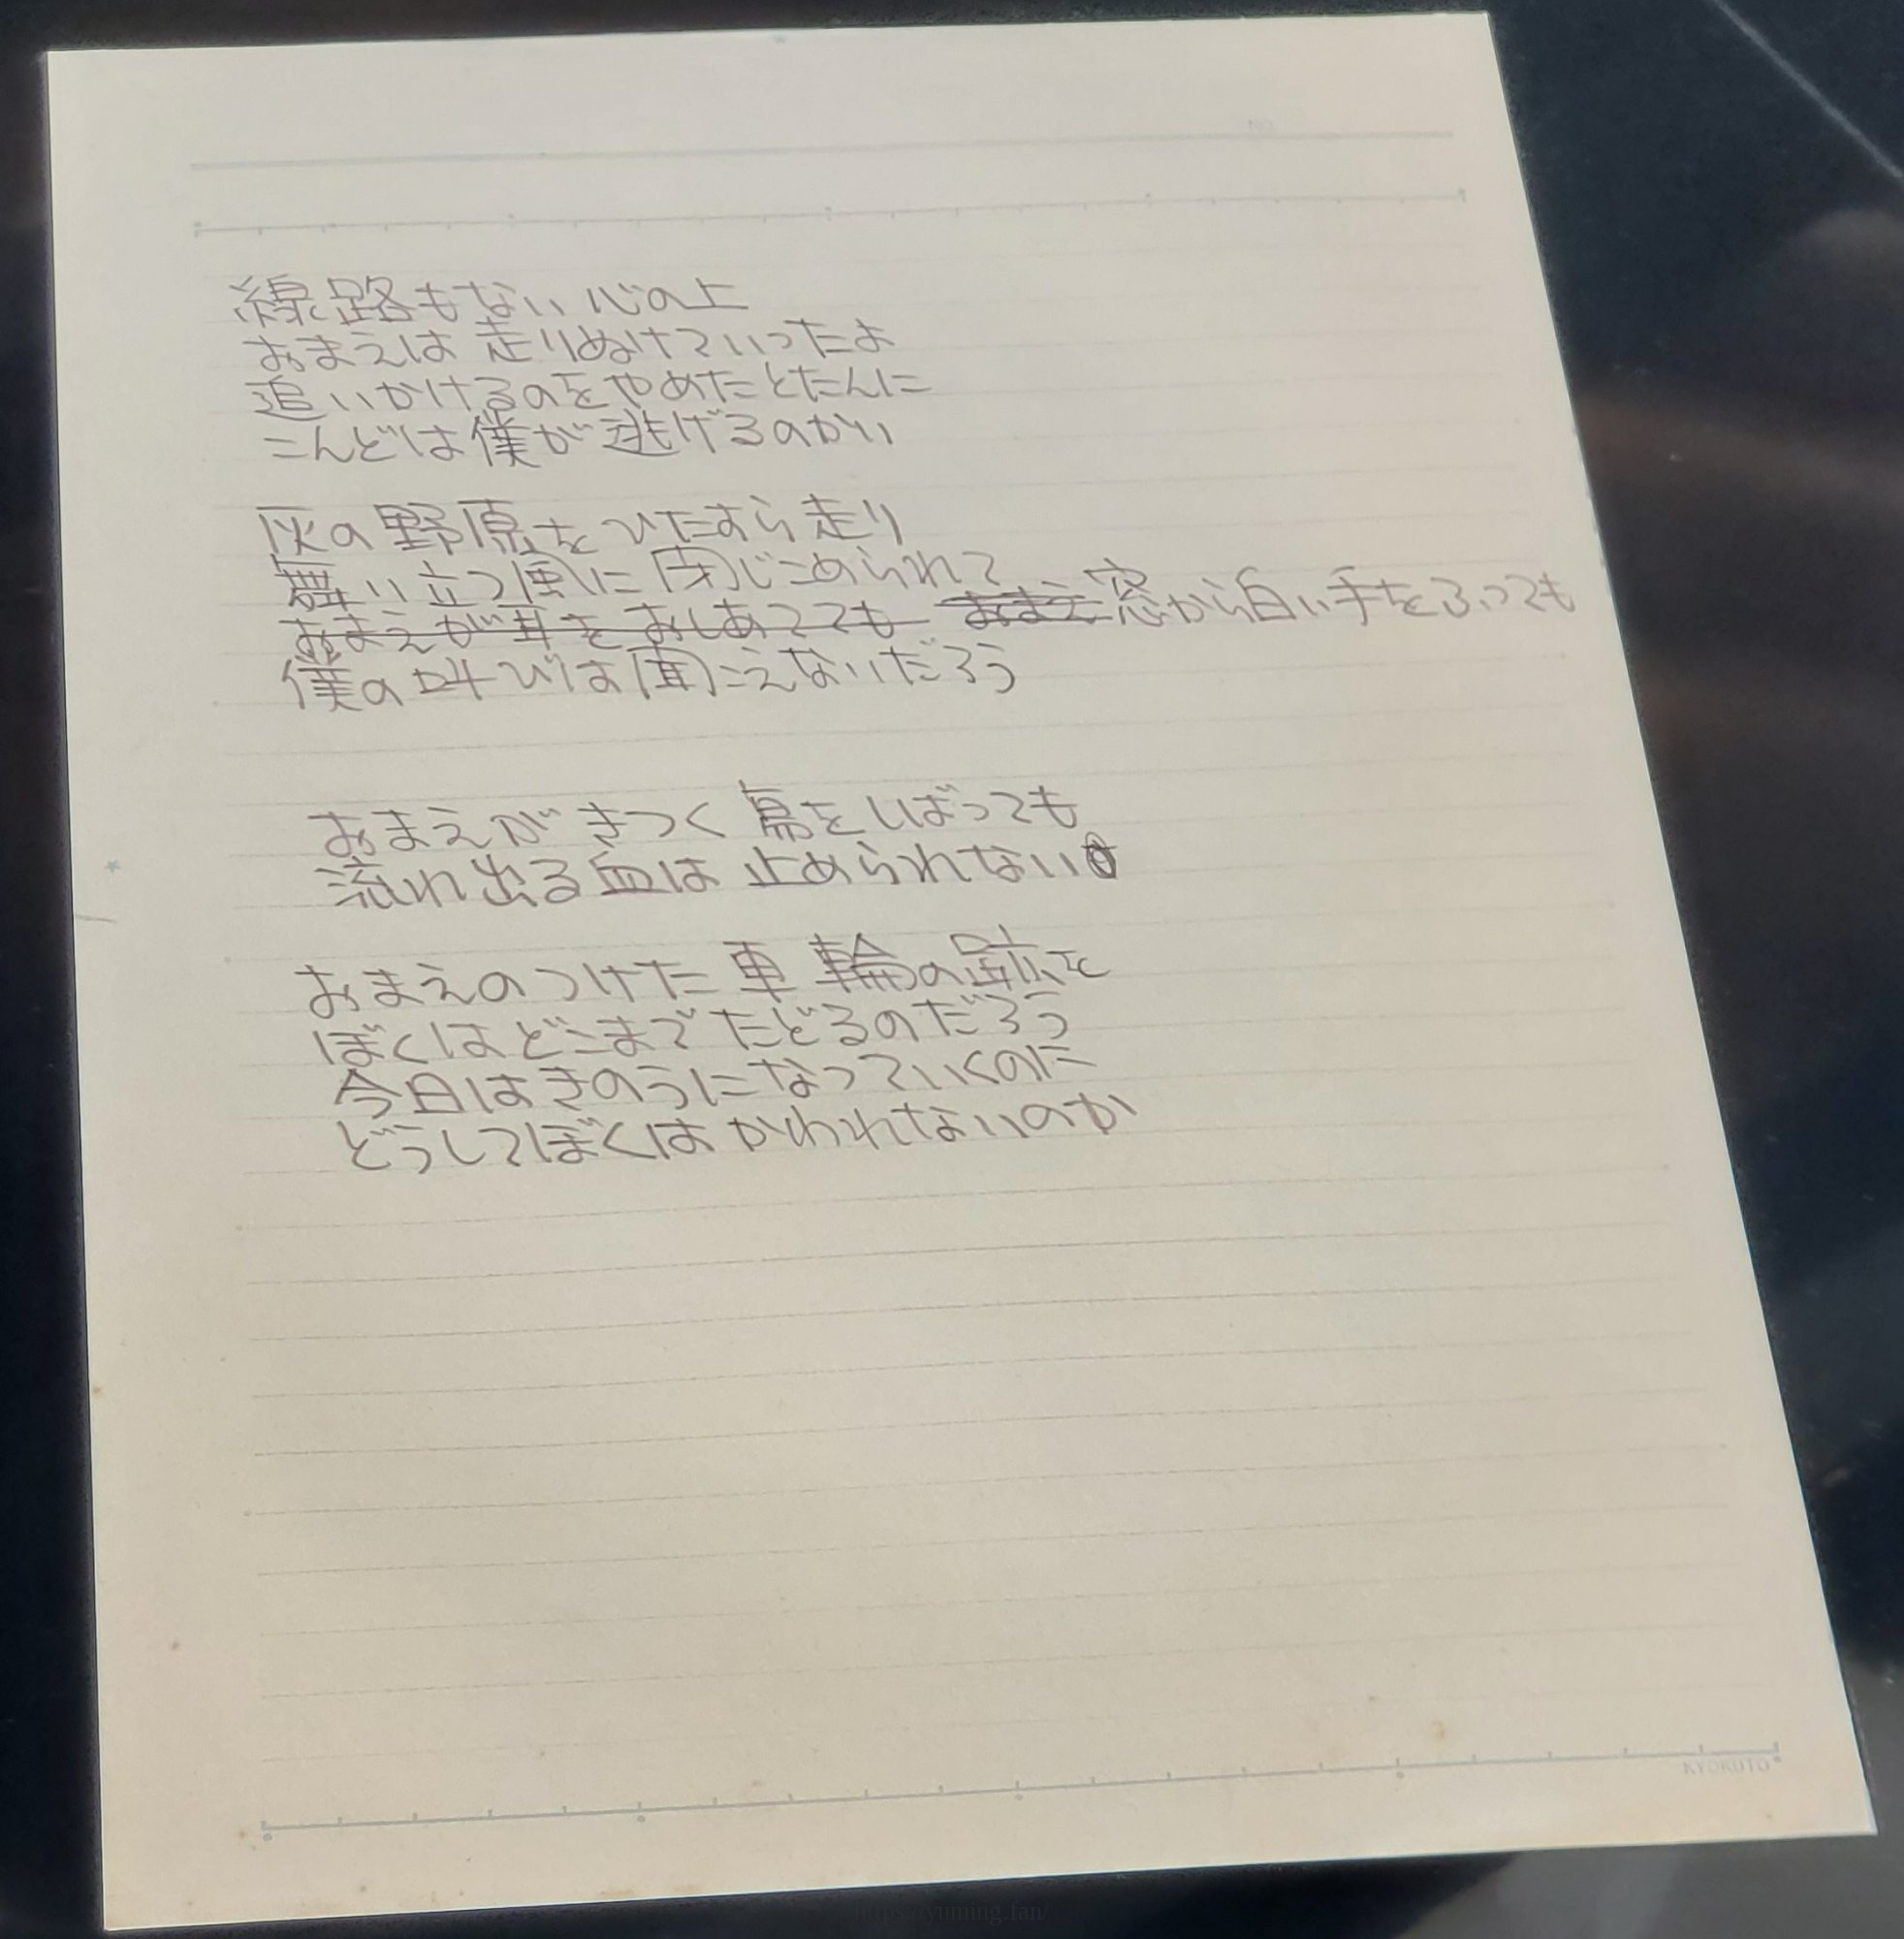 NO.
線路もない心の上
おまえは走りぬけていったよ
追いかけるのをやめたとたんに
こんどは僕が逃げるのかい
灰の野原をひたすら走り
舞い立つ風に閉じこめられて
おまえが耳をおしあてても おまえ 窓から白い手をふっても
僕の叫びは聞こえないだろう
おまえがきつく肩をしばっても
流れ出る血は止められない
おまえのつけた車輪の跡を
ぼくはどこまでたどるのだろう
今日はきのうになっていくのに
どうしてぼくはかわれないのか
KYOKUTO
https://yuming.fan/